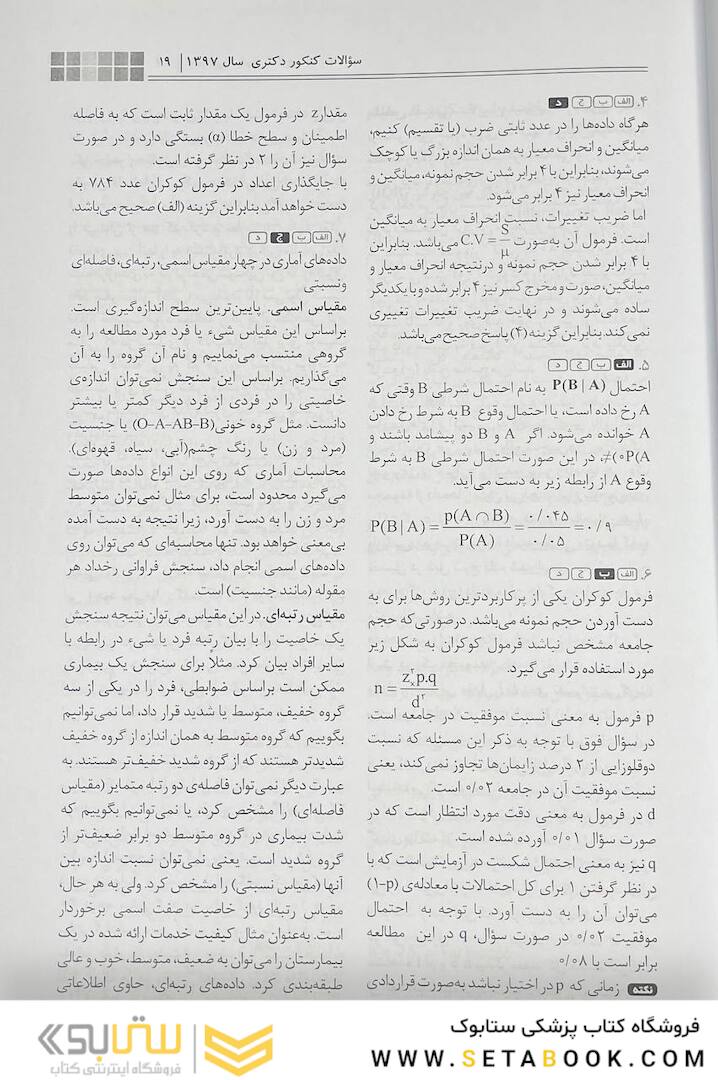 سؤالات کنکور دکتری سال ۱۳۹۷ | ۱۹
۴. الف ب ج د
هرگاه داده‌ها را در عدد ثابتی ضرب (یا تقسیم) کنیم،
میانگین و انحراف معیار به همان اندازه بزرگ یا کوچک
می‌شوند، بنابراین با ۴ برابر شدن حجم نمونه، میانگین و
انحراف معیار نیز ۴ برابر می‌شود.
اما ضریب تغییرات، نسبت انحراف معیار به میانگین
است. فرمول آن به‌صورت C.V = S/μ می‌باشد. بنابراین
با ۴ برابر شدن حجم نمونه و درنتیجه انحراف معیار و
میانگین، صورت و مخرج کسر نیز ۴ برابر شده و با یکدیگر
ساده می‌شوند و در نهایت ضریب تغییرات تغییری
نمی‌کند. بنابراین گزینه (۴) پاسخ صحیح می‌باشد.
۵. الف ب ج د
احتمال P(B | A) به نام احتمال شرطی B وقتی که
A رخ داده است، یا احتمال وقوع B به شرط رخ دادن
A خوانده می‌شود. اگر A و B دو پیشامد باشند و
P(A)≠۰، در این صورت احتمال شرطی B به شرط
وقوع A از رابطه زیر به دست می‌آید.
P(B | A) = p(A∩B)/P(A) = ۰/۰۴۵ / ۰/۰۵ = ۰/۹
۶. الف ب ج د
فرمول کوکران یکی از پرکاربردترین روش‌ها برای به
دست آوردن حجم نمونه می‌باشد. درصورتی‌که حجم
جامعه مشخص نباشد فرمول کوکران به شکل زیر
مورد استفاده قرار می‌گیرد.
n = z²ₓp.q / d²
p فرمول به معنی نسبت موفقیت در جامعه است.
در سؤال فوق با توجه به ذکر این مسئله که نسبت
دوقلوزایی از ۲ درصد زایمان‌ها تجاوز نمی‌کند، یعنی
نسبت موفقیت آن در جامعه ۰/۰۲ است.
d در فرمول به معنی دقت مورد انتظار است که در
صورت سؤال ۰/۰۱ آورده شده است.
q نیز به معنی احتمال شکست در آزمایش است که با
در نظر گرفتن ۱ برای کل احتمالات با معادله‌ی (۱-p)
می‌توان آن را به دست آورد. با توجه به احتمال
موفقیت ۰/۰۲ در صورت سؤال، q در این مطالعه
برابر است با ۰/۰۸
نکته زمانی که p در اختیار نباشد به‌صورت قراردادی
مقدار z در فرمول یک مقدار ثابت است که به فاصله
اطمینان و سطح خطا (α) بستگی دارد و در صورت
سؤال نیز آن را ۲ در نظر گرفته است.
با جایگذاری اعداد در فرمول کوکران عدد ۷۸۴ به
دست خواهد آمد بنابراین گزینه (الف) صحیح می‌باشد.
۷. الف ب ج د
داده‌های آماری در چهار مقیاس اسمی، رتبه‌ای، فاصله‌ای
ونسبتی
مقیاس اسمی. پایین‌ترین سطح اندازه‌گیری است.
براساس این مقیاس شیء یا فرد مورد مطالعه را به
گروهی منتسب می‌نماییم و نام آن گروه را به آن
می‌گذاریم. براساس این سنجش نمی‌توان اندازه‌ی
خاصیتی را در فردی از فرد دیگر کمتر یا بیشتر
دانست. مثل گروه خونی(O-A-AB-B) یا جنسیت
(مرد و زن) یا رنگ چشم(آبی، سیاه، قهوه‌ای).
محاسبات آماری که روی این انواع داده‌ها صورت
می‌گیرد محدود است، برای مثال نمی‌توان متوسط
مرد و زن را به دست آورد، زیرا نتیجه به دست آمده
بی‌معنی خواهد بود. تنها محاسبه‌ای که می‌توان روی
داده‌های اسمی انجام داد، سنجش فراوانی رخداد هر
مقوله (مانند جنسیت) است.
مقیاس رتبه‌ای. در این مقیاس می‌توان نتیجه سنجش
یک خاصیت را با بیان رتبه فرد یا شیء در رابطه با
سایر افراد بیان کرد. مثلاً برای سنجش یک بیماری
ممکن است براساس ضوابطی، فرد را در یکی از سه
گروه خفیف، متوسط یا شدید قرار داد، اما نمی‌توانیم
بگوییم که گروه متوسط به همان اندازه از گروه خفیف
شدیدتر هستند که از گروه شدید خفیف‌تر هستند. به
عبارت دیگر نمی‌توان فاصله‌ی دو رتبه متمایز (مقیاس
فاصله‌ای) را مشخص کرد، یا نمی‌توانیم بگوییم که
شدت بیماری در گروه متوسط دو برابر ضعیف‌تر از
گروه شدید است. یعنی نمی‌توان نسبت اندازه بین
آنها (مقیاس نسبتی) را مشخص کرد. ولی به هر حال،
مقیاس رتبه‌ای از خاصیت صفت اسمی برخوردار
است. به‌عنوان مثال کیفیت خدمات ارائه شده در یک
بیمارستان را می‌توان به ضعیف، متوسط، خوب و عالی
طبقه‌بندی کرد. داده‌های رتبه‌ای، حاوی اطلاعاتی
فروشگاه کتاب پزشکی ستابوک
WWW.SETABOOK.COM
ستابوک
فروشگاه اینترنتی کتاب